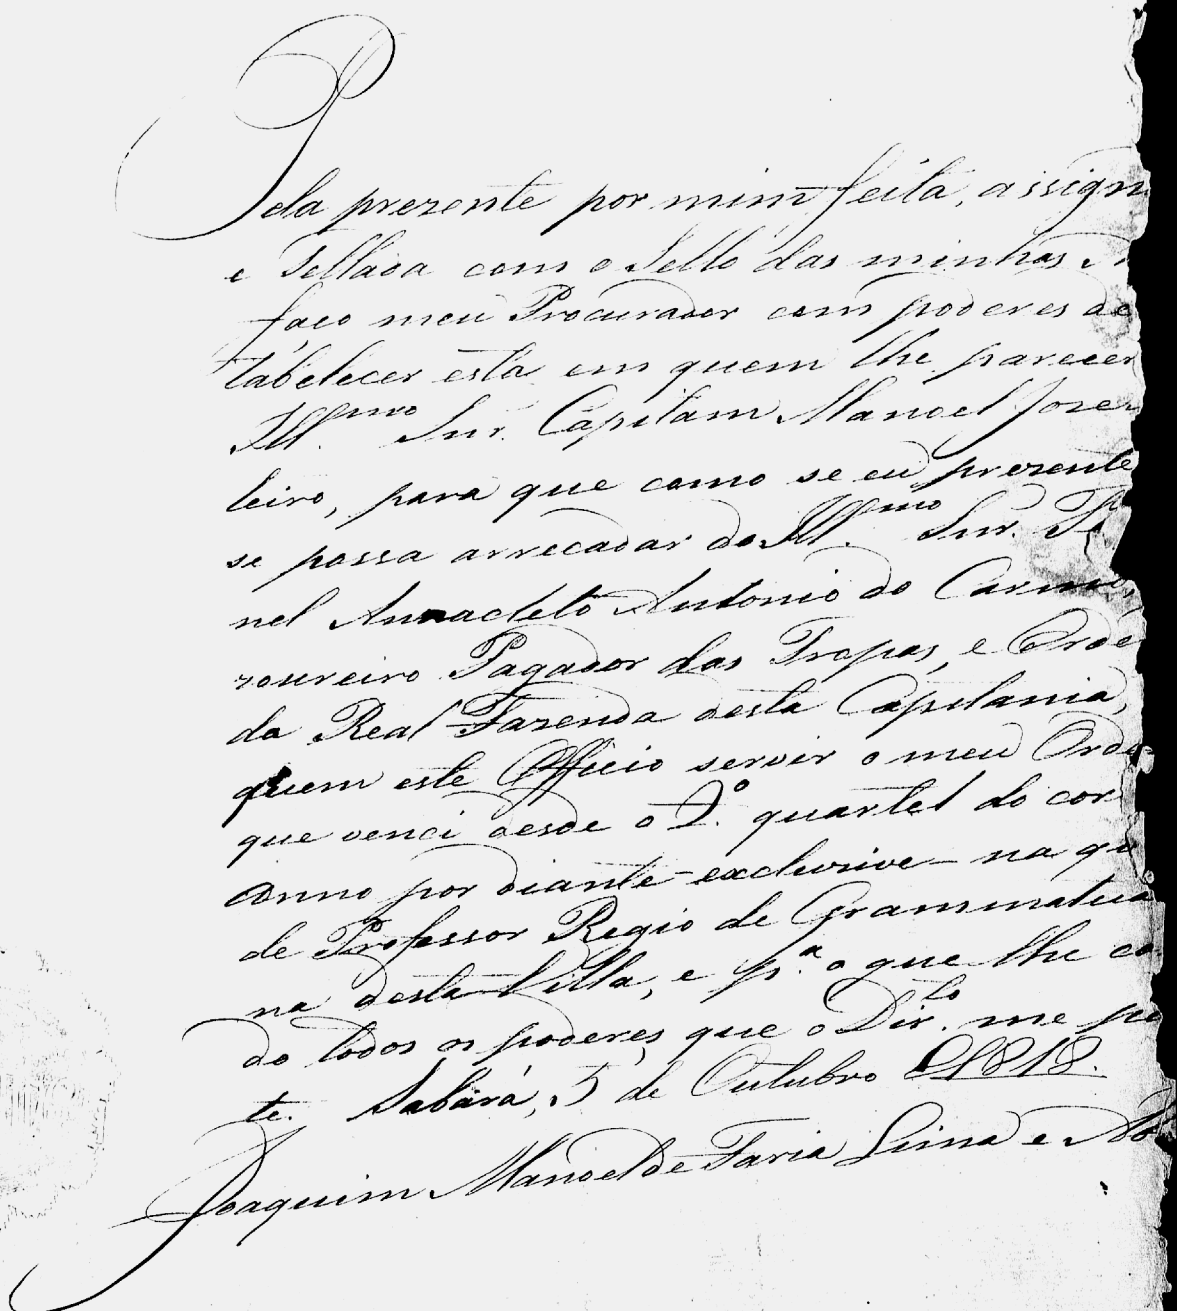 Pela prezente por mim feita, assign
e Sellada com o Sello das minhas
faço meu Procurador com poderes de
tabelecer esta em quem lhe parecer
Ill.mo Snr. Capitam Manoel Joze
leiro, para que como se eu prezente
se possa arrecadar do Ill.mo Snr. Te
nel Annacleto Antonio do Carmo,
zoureiro Pagador das Tropas, e Orde
da Real Fazenda desta Capitania,
quem este Officio servir o meu Orde
que venci desde o 2.º quartel do cor
anno por diante exclusive na qu
de Professor Regio de Grammatica
na desta Villa, e p.ª o que lhe co
do todos os poderes, que o Dir.to me pe
te. Sabará, 5 de Outubro 1818.
Joaquim Manoel de Faria Lima e